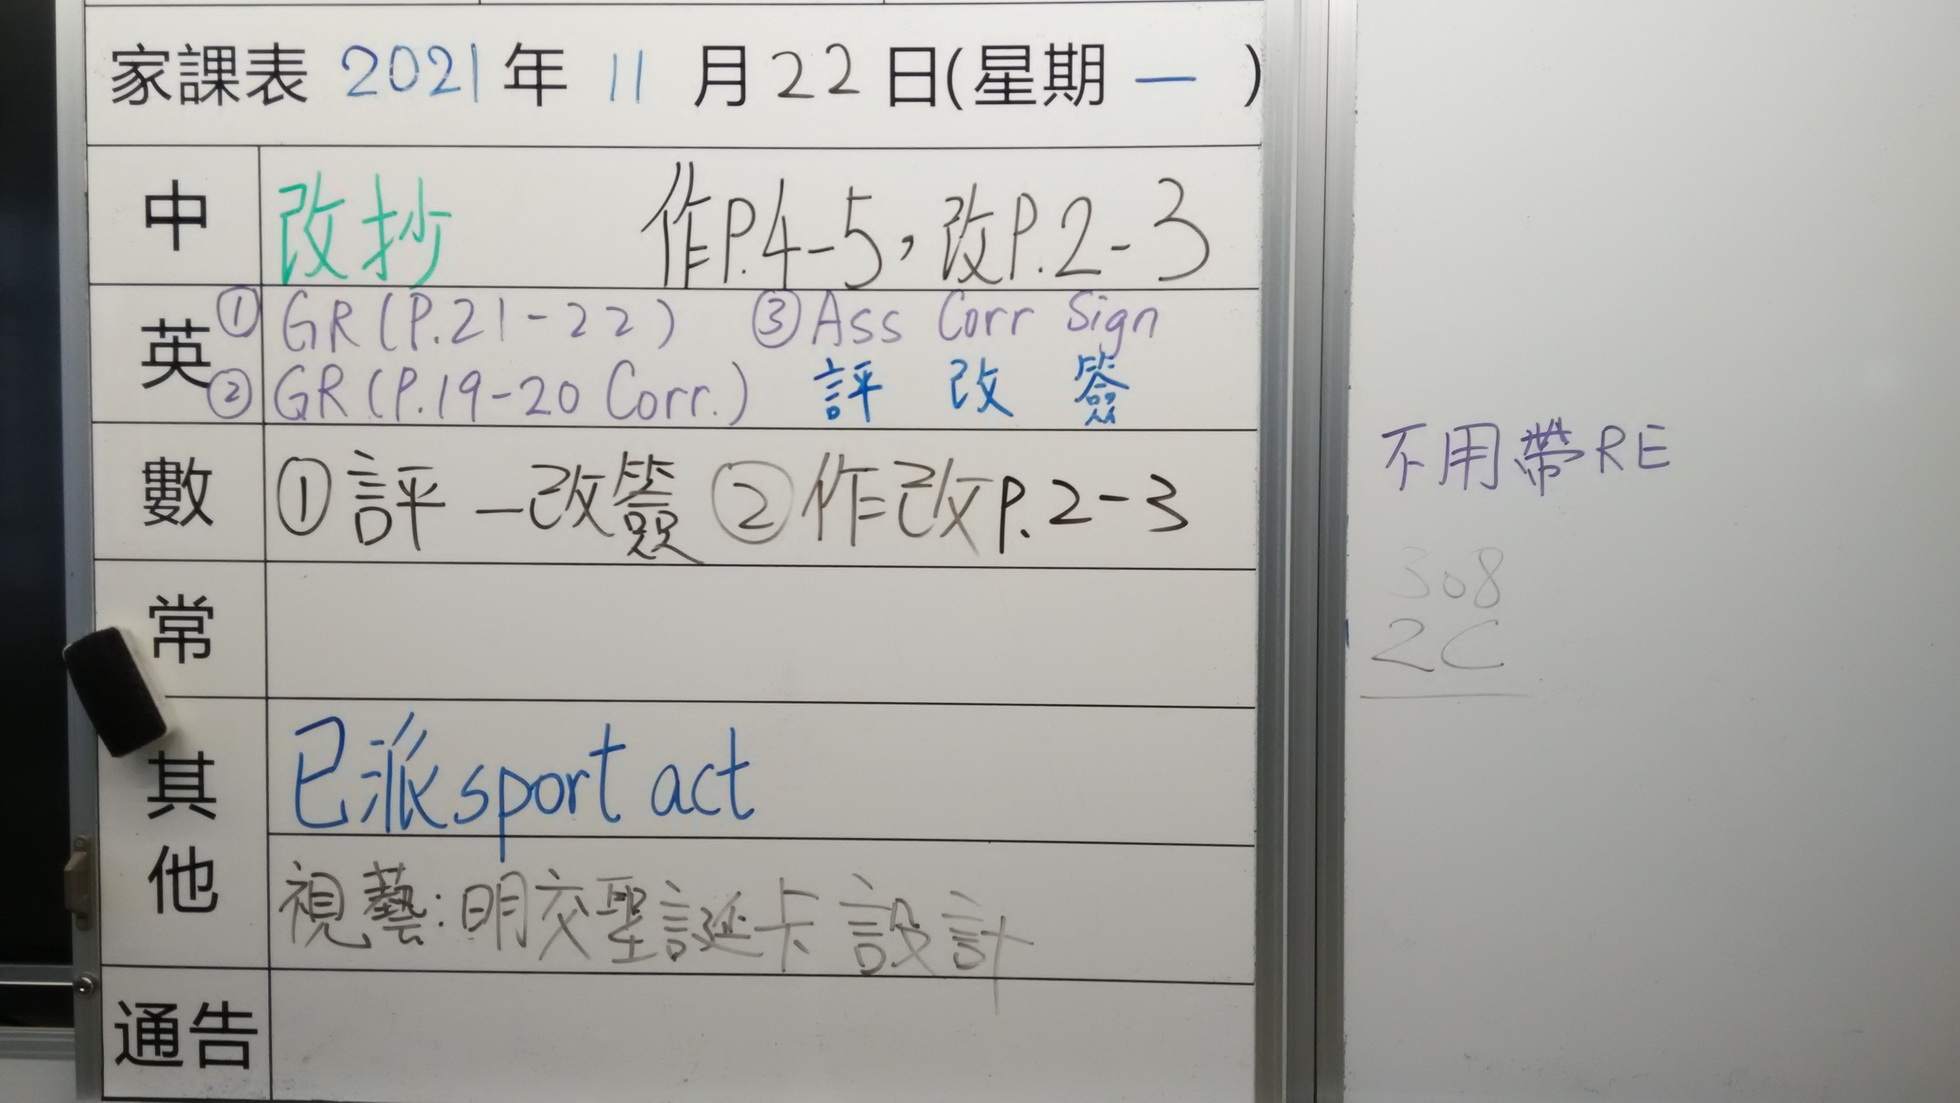 家課表 2021年 11 月22日(星期一)
中 改抄 作P.4-5，改P.2-3
英 ① GR(P.21-22) ③Ass Corr Sign
② GR(P.19-20 Corr.) 評 改 簽
數 ①評一改簽 ②作改P.2-3
常
其他 已派sport act
視藝:明交聖誕卡設計
通告
不用帶RE
308
2C